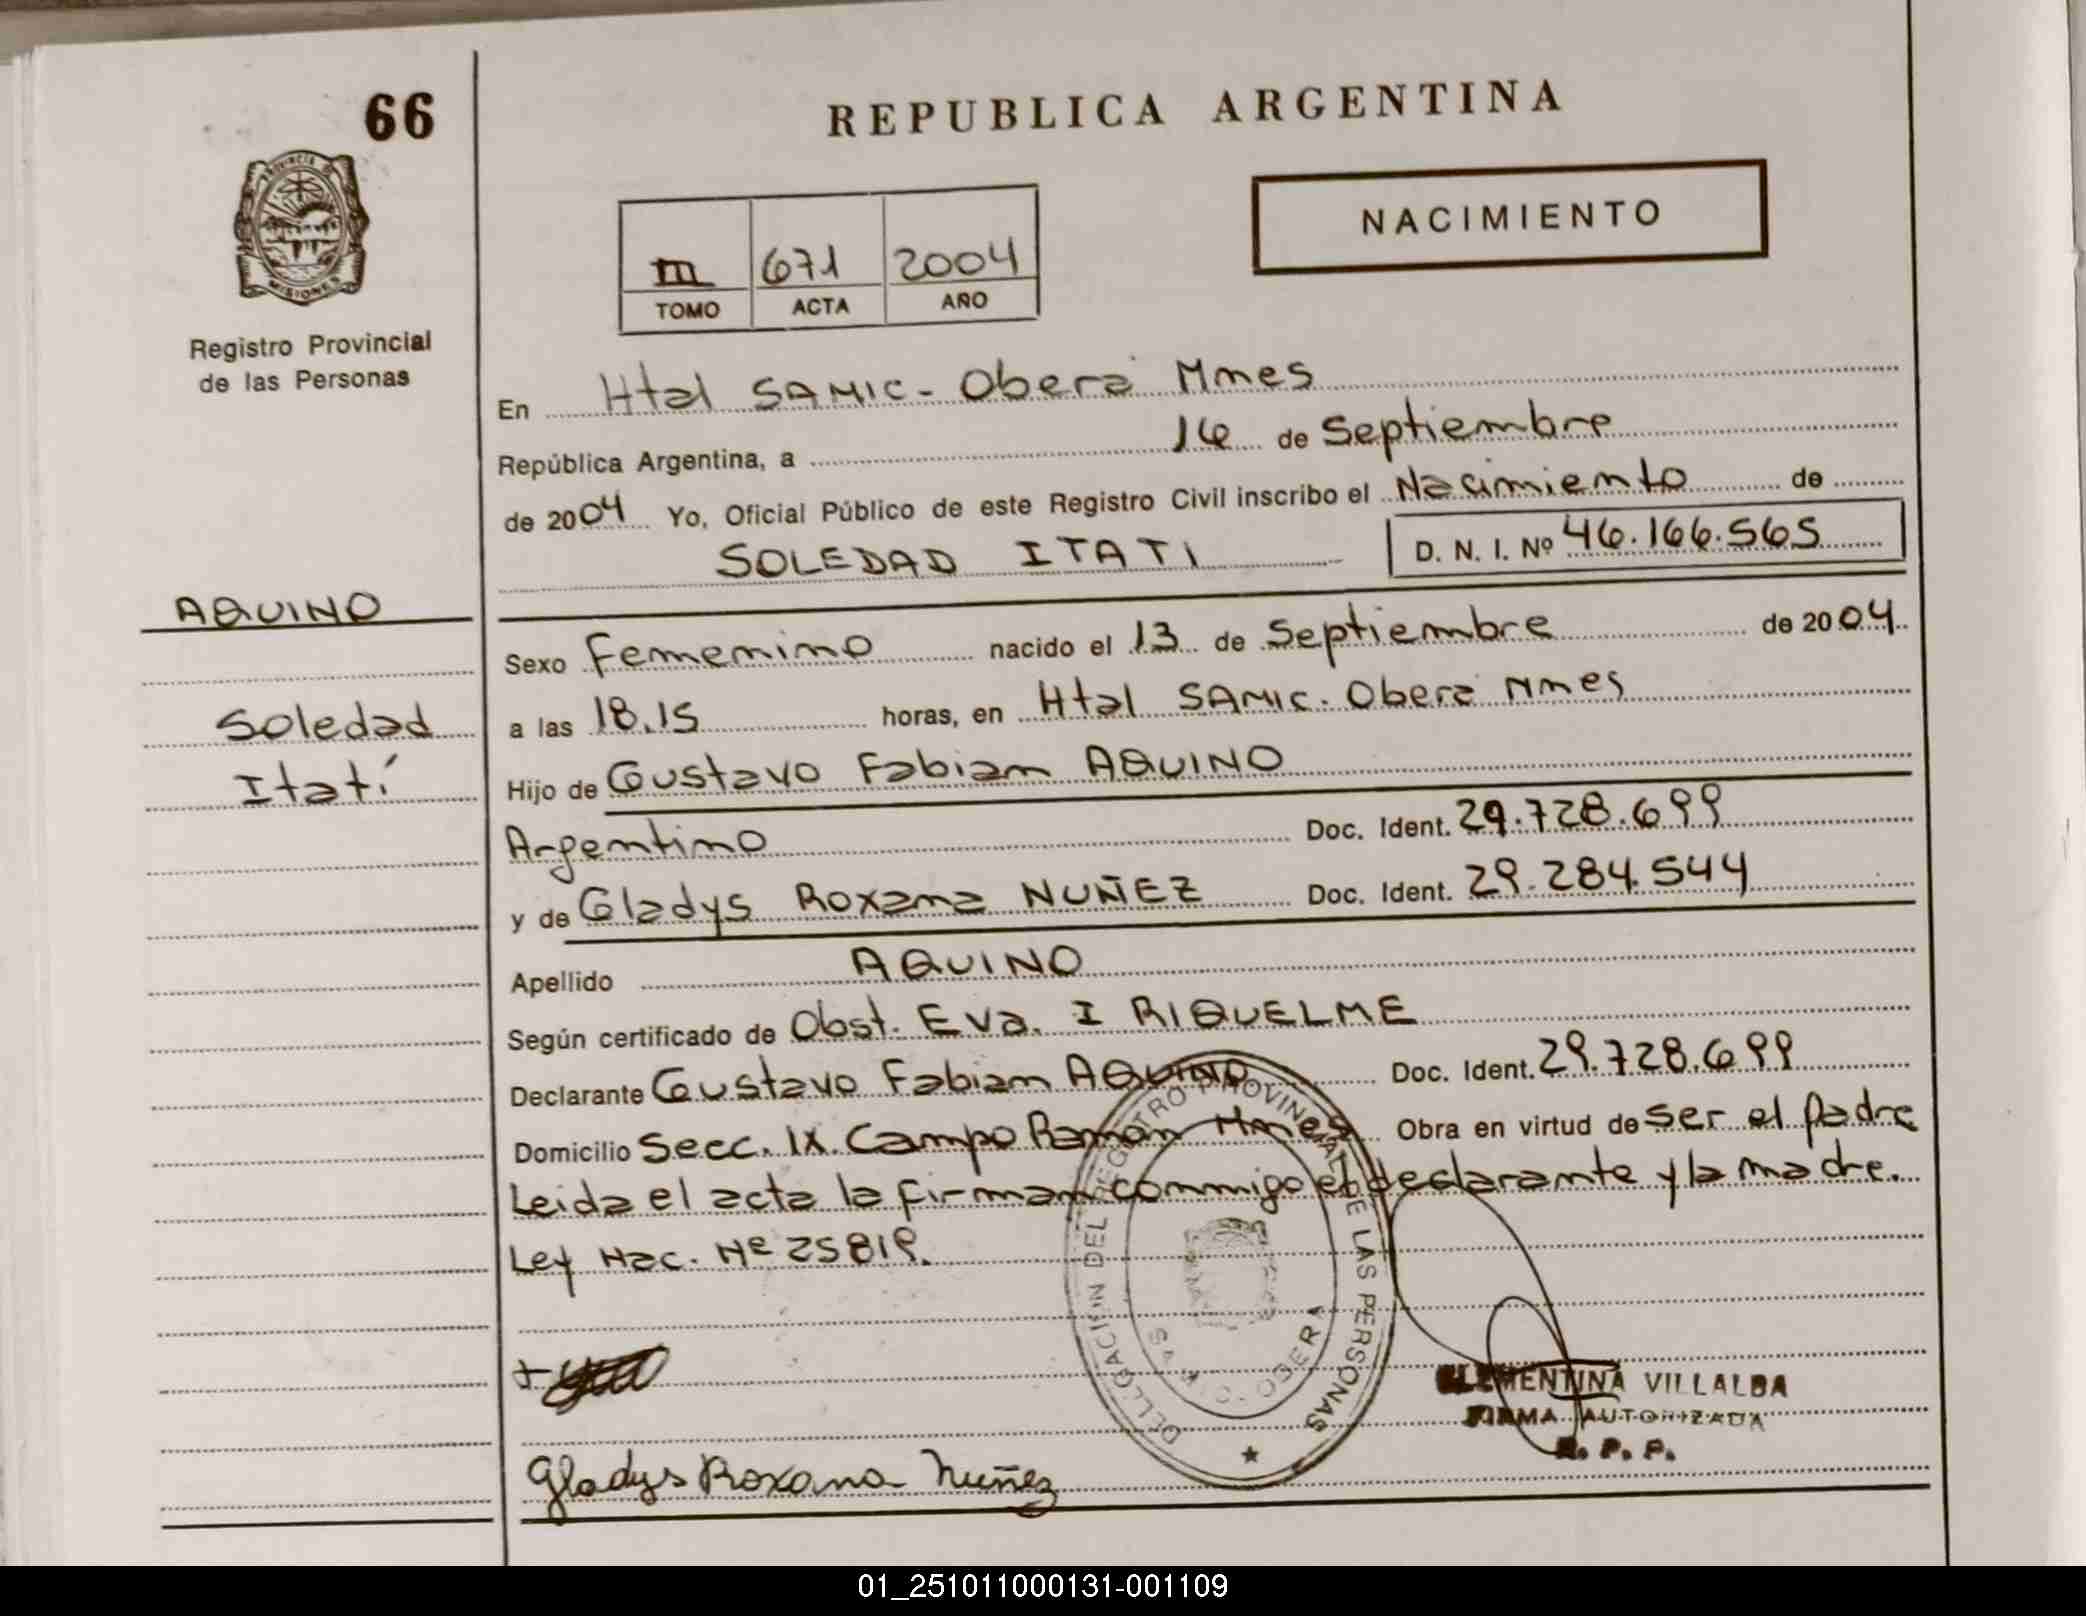 66
REPUBLICA ARGENTINA
PROVINCIA DE
MISIONES
NACIMIENTO
III 671 2004
TOMO ACTA AÑO
Registro Provincial
de las Personas
En Htal SAMIC - Oberá Mnes
República Argentina, a 16 de Septiembre
de 2004 Yo, Oficial Público de este Registro Civil inscribo el Nacimiento de
SOLEDAD ITATI D. N. I. Nº 46.166.565
AQUINO
Soledad
Itatí
Sexo Femenino nacido el 13 de Septiembre de 2004
a las 18.15 horas, en Htal SAMIC. Oberá Mnes
Hijo de Gustavo Fabian AQUINO
Argentino Doc. Ident. 29.728.699
y de Gladys Roxana NUÑEZ Doc. Ident. 29.284.544
Apellido AQUINO
Según certificado de Obst. Eva. I RIQUELME
Declarante Gustavo Fabian AQUINO Doc. Ident. 29.728.699
Domicilio Secc. IX. Campo Ramón Mnes Obra en virtud de ser el padre
Leida el acta la firman conmigo el declarante y la madre.
Ley Nac. Nº 25819.
DELEGACION DEL REGISTRO PROVINCIAL DE LAS PERSONAS
OBERA
CLEMENTINA VILLALBA
FIRMA AUTORIZADA
R. P. P.
Gladys Roxana Nuñez
01_251011000131-001109